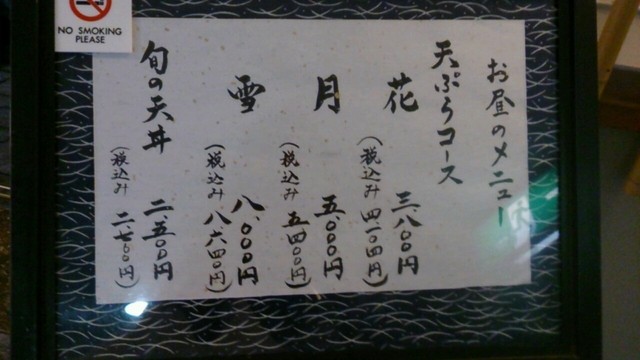 NO SMOKING
PLEASE
お昼のメニュー
天ぷらコース
花 三、八〇〇円
(税込み 四、一〇四円)
月 五、〇〇〇円
(税込み 五、四〇〇円)
雪 八、〇〇〇円
(税込み 八、六四〇円)
旬の天丼 二、五〇〇円
(税込み 二、七〇〇円)